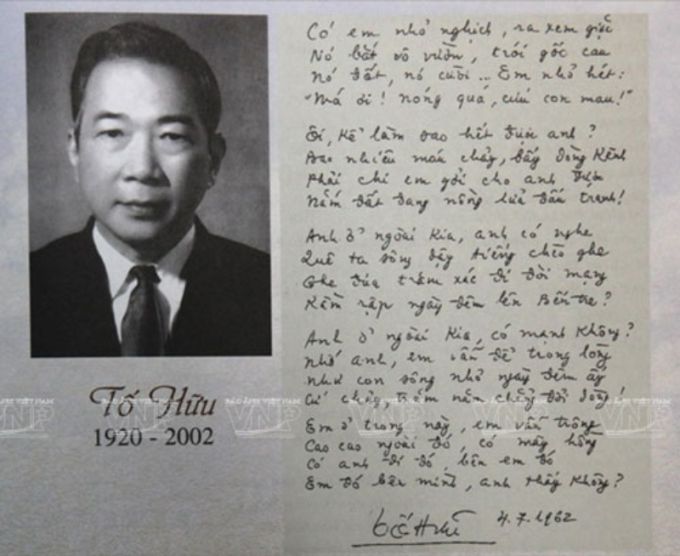 Tố Hữu
1920 - 2002
Có em nhỏ nghịch, ra xem giặc
Nó bắt vô vườn, trói gốc cau
Nó đốt, nó cười... Em nhỏ hét:
"Má ơi! nóng quá, cứu con mau!"
Ôi, kể làm sao hết được anh?
Bao nhiêu máu chảy, bấy dòng kênh
Phải chi em gởi cho anh được
Nắm đất đang nồng lửa đấu tranh!
Anh ở ngoài kia, anh có nghe
Quê ta sông dậy tiếng chèo ghe
Ghe đưa trăm xác đi đòi mạng
Rầm rập ngày đêm lên Bến tre?
Anh ở ngoài kia, có mạnh không?
Nhớ anh, em vẫn để trong lòng
Như con sông nhỏ ngày đêm ấy
Cứ chảy, trăm năm chẳng đổi dòng!
Em ở trong này, em vẫn trông
Cao cao ngoài đó, có mây hồng
Có anh đi đó, bên em đó
Em đó bên mình, anh thấy không?
Tố Hữu 4.7.1962
BÁO ẢNH VIỆT NAM
VNP